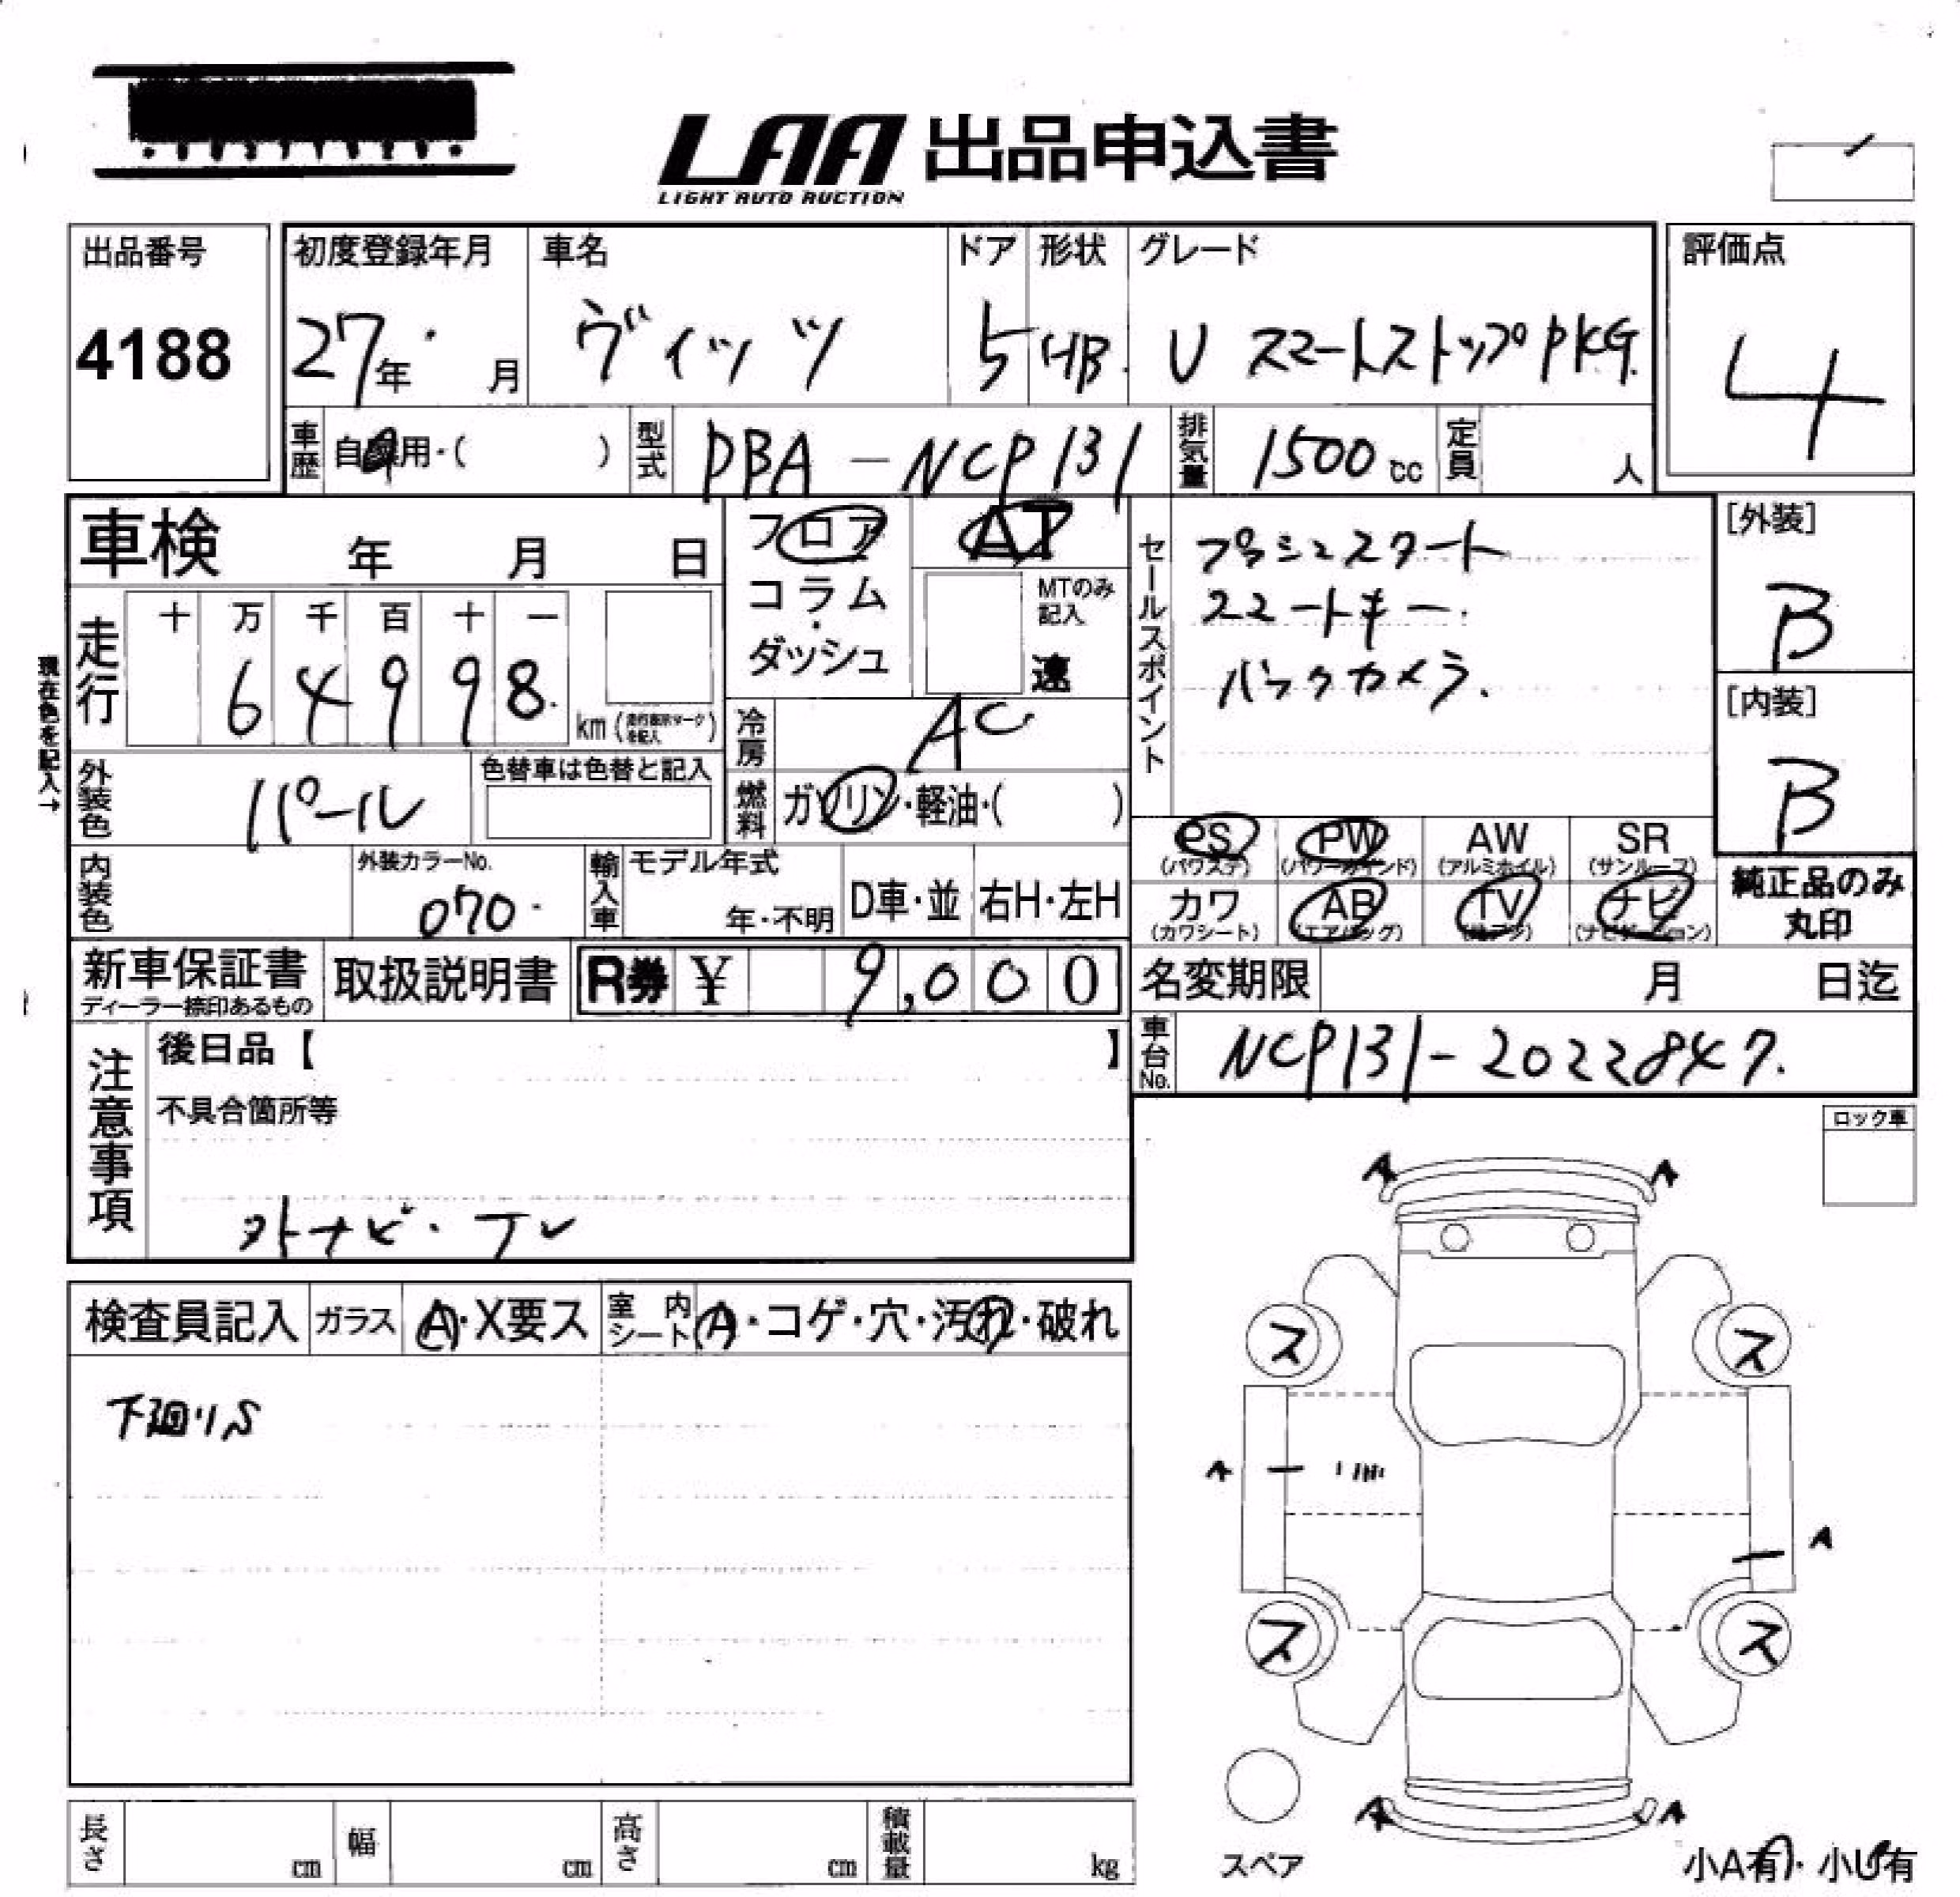 LAA 出品申込書
LIGHT AUTO AUCTION
出品番号
4188
初度登録年月
27年 月
車名
ヴィッツ
ドア
5
形状
HB.
グレード
U スマートストップPKG.
評価点
4
車歴
自 用・( )
型式
DBA-NCP131
排気量
1500 cc
定員
人
車検 年 月 日
フロア
コラム
ダッシュ
AT
MTのみ
記入
速
セールスポイント
プッシュスタート
スマートキー.
バックカメラ.
[外装]
B
[内装]
B
現在色を記入→
走行
十 万 千 百 十 一
6 4 9 9 8.
km (走行表示マークを記入)
冷房
AC
外装色
パール
色替車は色替と記入
燃料
ガソリン・軽油・( )
PS
(パワステ)
PW
(パワーウインド)
AW
(アルミホイル)
SR
(サンルーフ)
内装色
外装カラーNo.
070.
輸入車
モデル年式
年・不明
D車・並
右H・左H
カワ
(カワシート)
AB
(エアバッグ)
TV
(地デジ)
ナビ
(ナビゲーション)
純正品のみ
丸印
新車保証書
ディーラー捺印あるもの
取扱説明書
R券 ¥ 9,000
名変期限 月 日迄
車台No.
NCP131-2022847.
注意事項
後日品【 】
不具合箇所等
外ナビ・TV
ロック車
検査員記入
ガラス
A・X要ス
室内シート
A・コゲ・穴・汚れ・破れ
下廻りS
A A
ス ス
A
A
ス ス
A A
スペア
小A有・小U有
長さ cm
幅 cm
高さ cm
積載量 kg